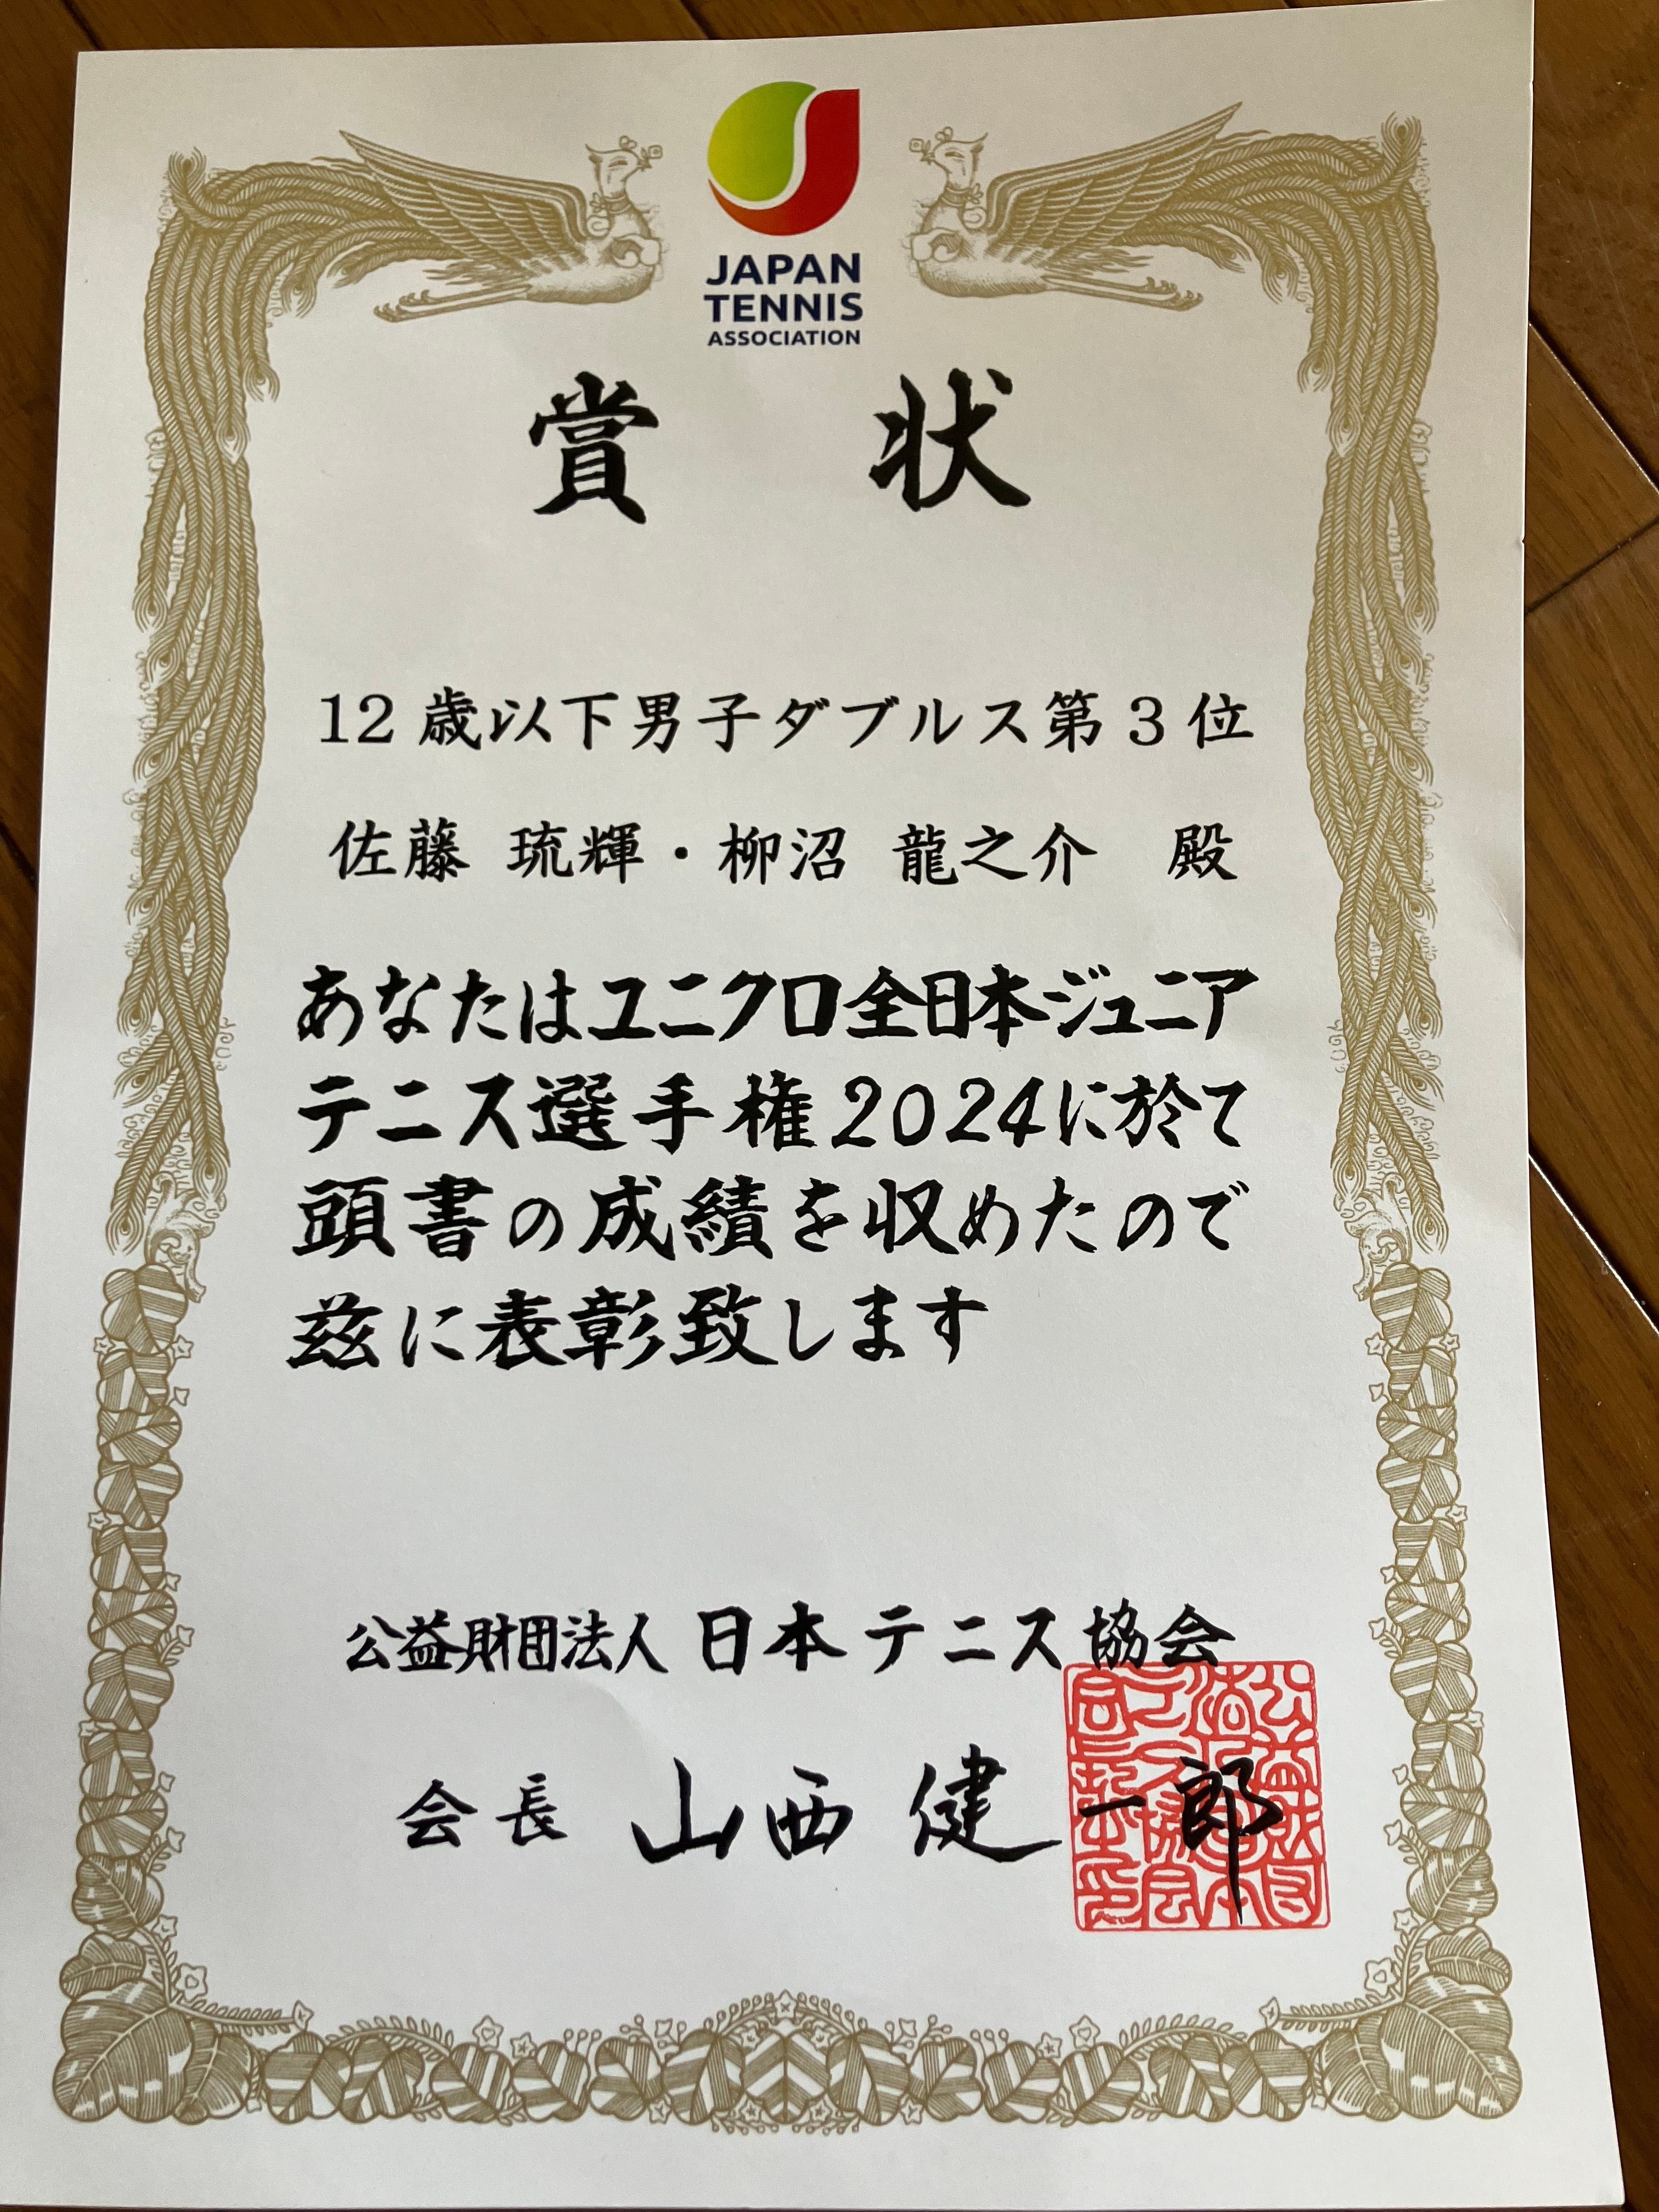 JAPAN
TENNIS
ASSOCIATION
賞 状
12歳以下男子ダブルス第3位
佐藤 琉輝・柳沼 龍之介 殿
あなたはユニクロ全日本ジュニア
テニス選手権2024に於て
頭書の成績を収めたので
茲に表彰致します
公益財団法人 日本テニス協会
会長 山西 健一郎